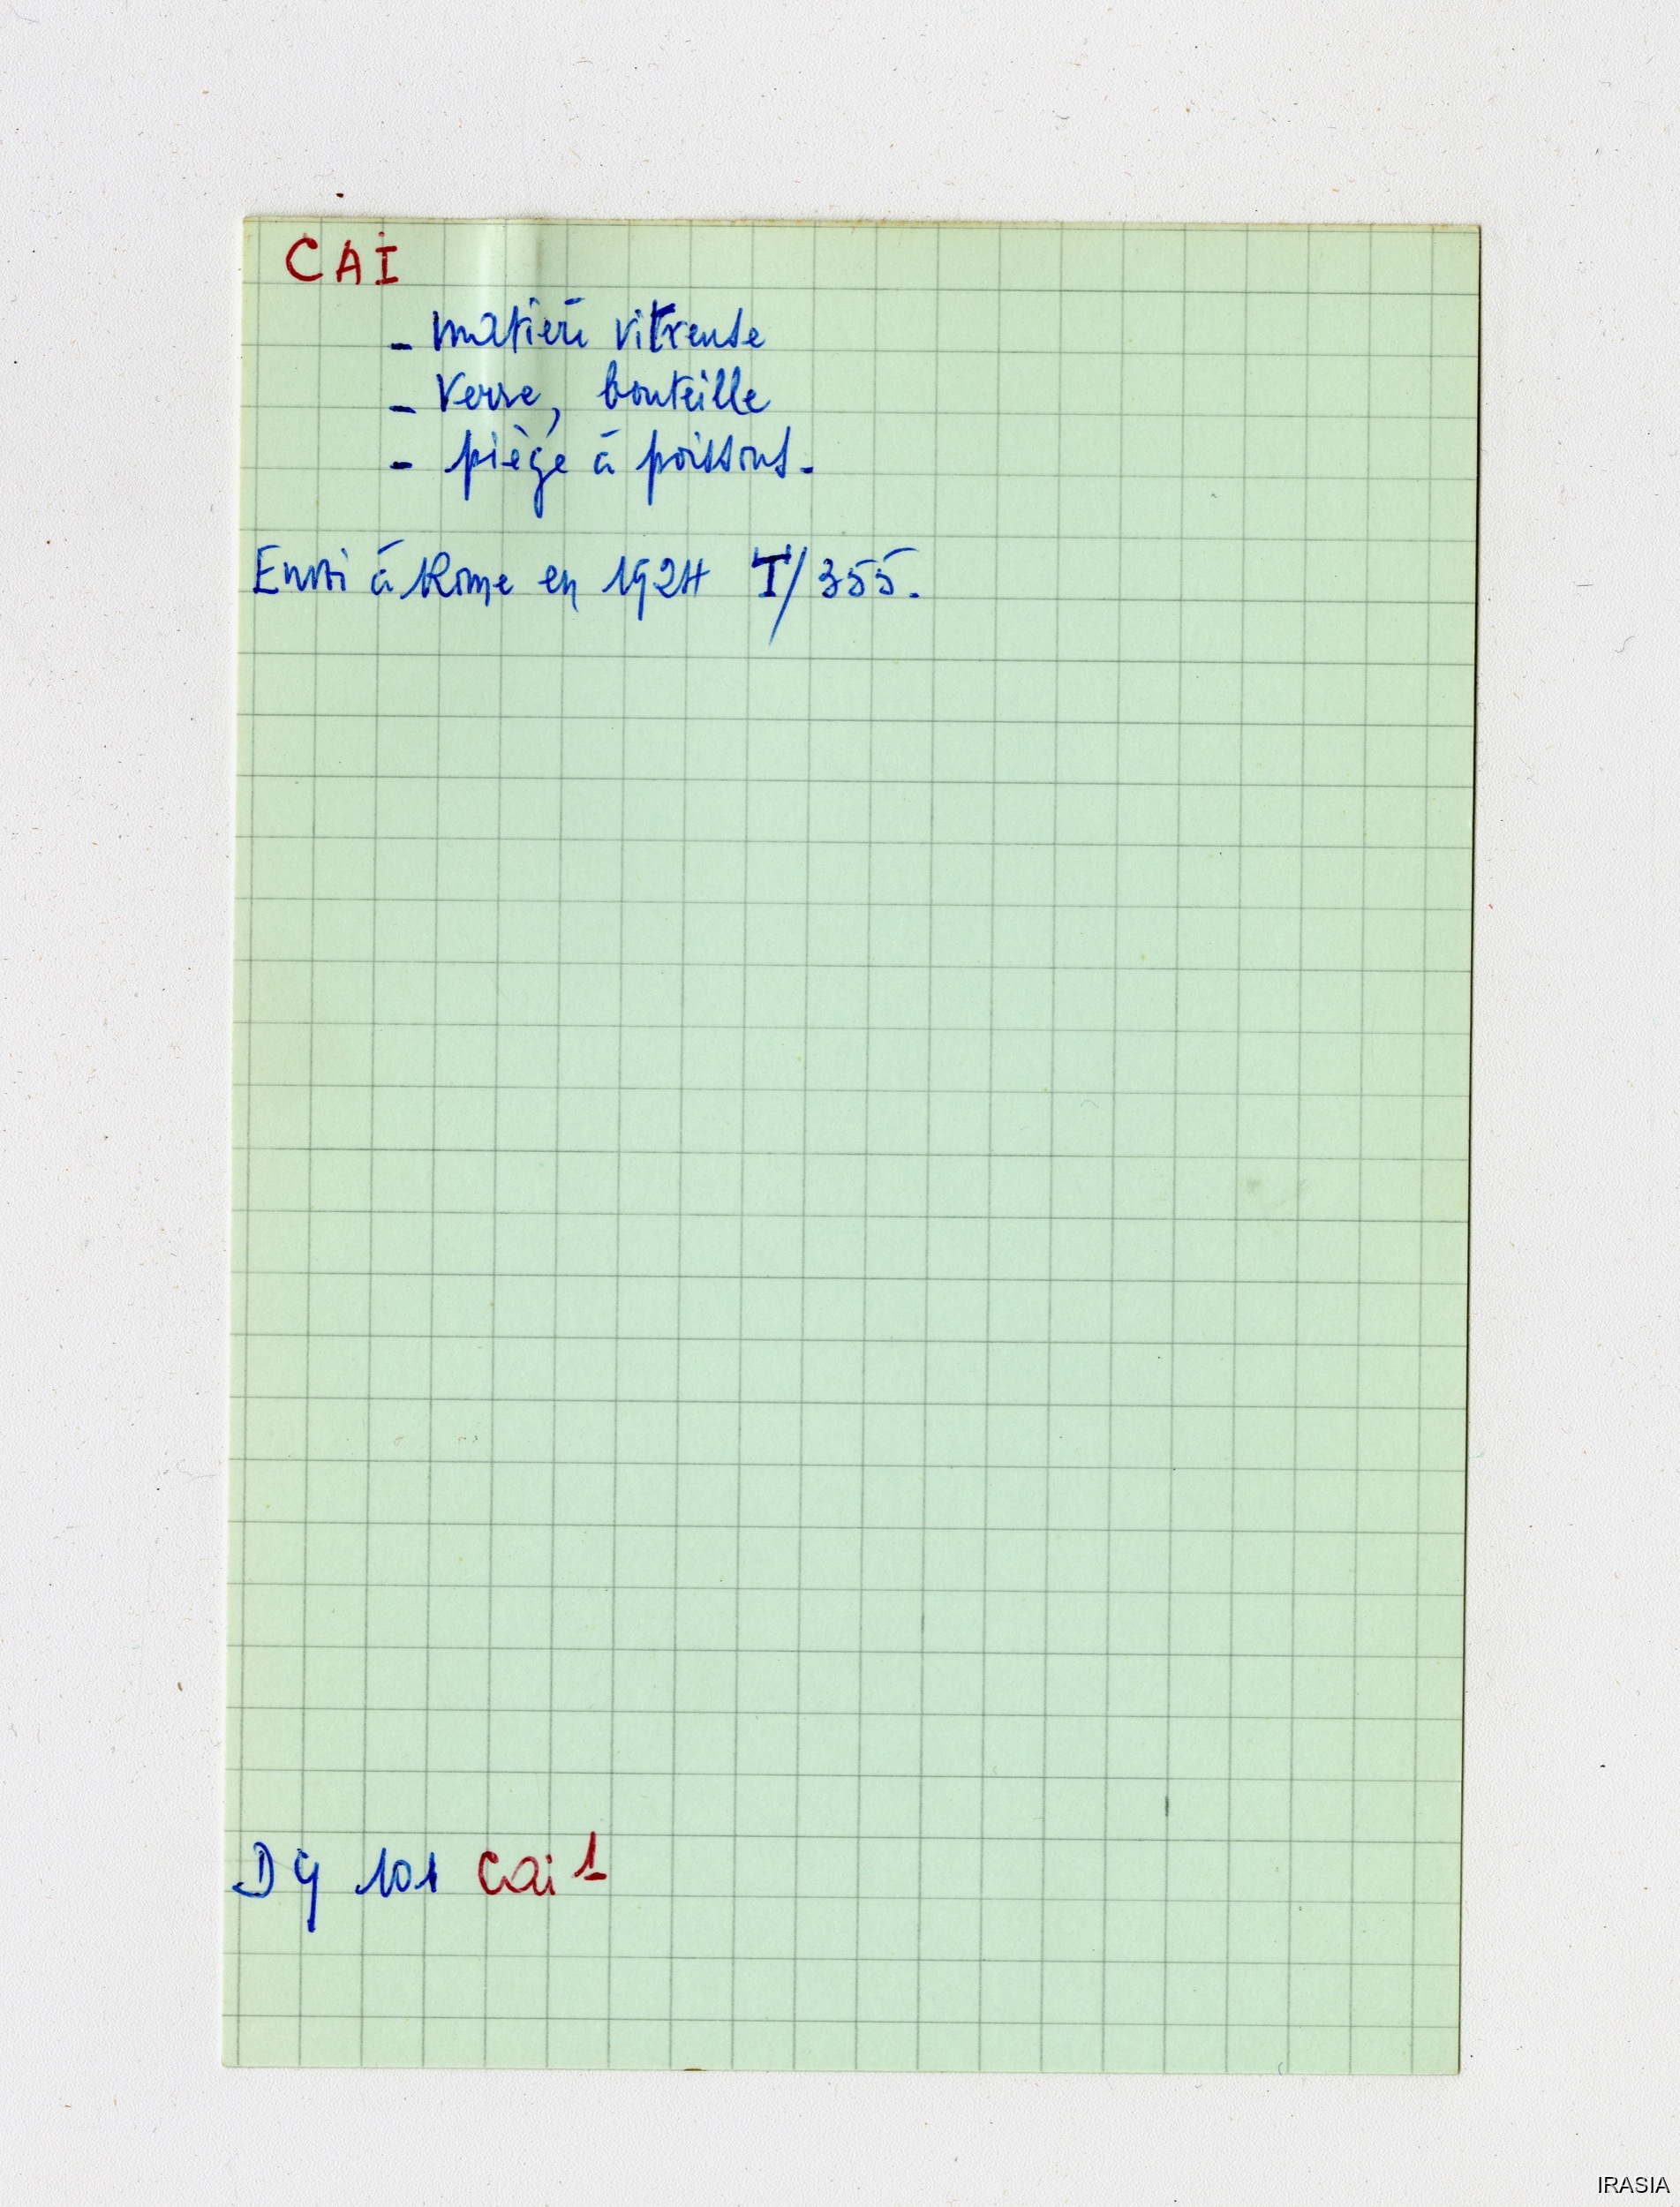 CAI
- matière vitreuse
- Verre, bouteille
- piège à poissons.
Envoi à Rome en 1924 I/355.
D9 101 Cai 1
IRASIA